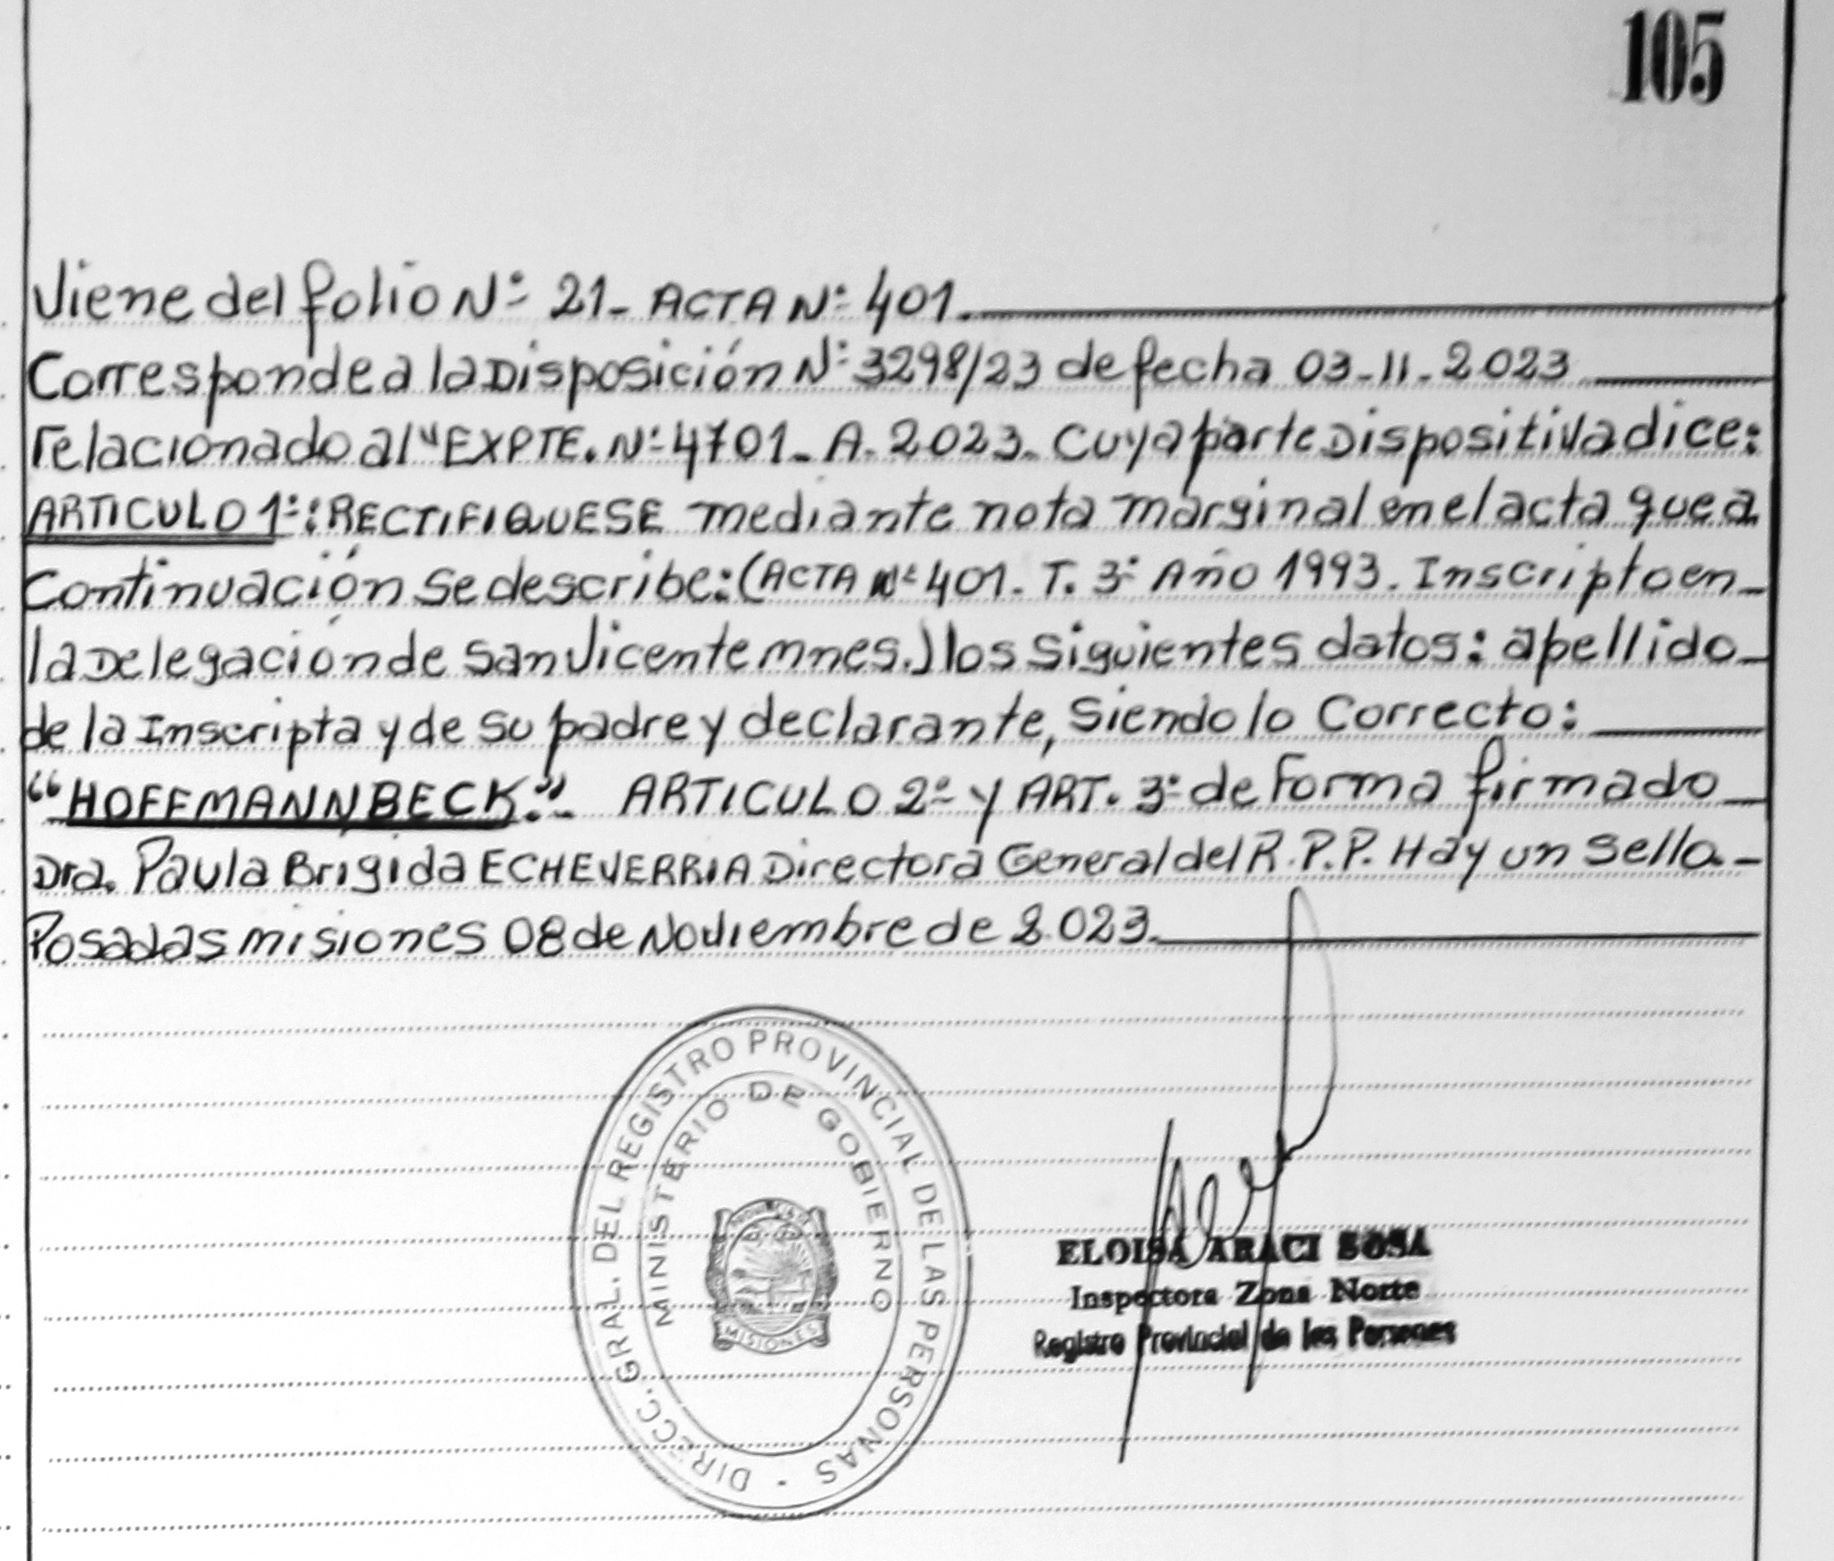 105
Viene del folio Nº 21- ACTA Nº 401.
Corresponde a la Disposición Nº 3298/23 de fecha 03-11-2023
relacionado al "EXPTE. Nº 4701- A- 2023. Cuya parte Dispositiva dice:
ARTICULO 1º: RECTIFIQUESE mediante nota marginal en el acta que a
Continuación Se describe: (ACTA Nº 401- T. 3º Año 1993. Inscripto en
la Delegación de San Vicente mnes.) los siguientes datos: apellido
de la Inscripta y de su padre y declarante, Siendo lo Correcto:
"HOFFMANNBECK". ARTICULO 2º y ART. 3º de Forma firmado
Dra. Paula Brigida ECHEVERRIA Directora General del R.P.P. Hay un Sello.
Posadas misiones 08 de Noviembre de 2.023.
DIRECC. GRAL. DEL REGISTRO PROVINCIAL DE LAS PERSONAS
MINISTERIO DE GOBIERNO
PROVINCIA
MISIONES
ELOISA ARACI SOSA
Inspectora Zona Norte
Registro Provincial de las Personas